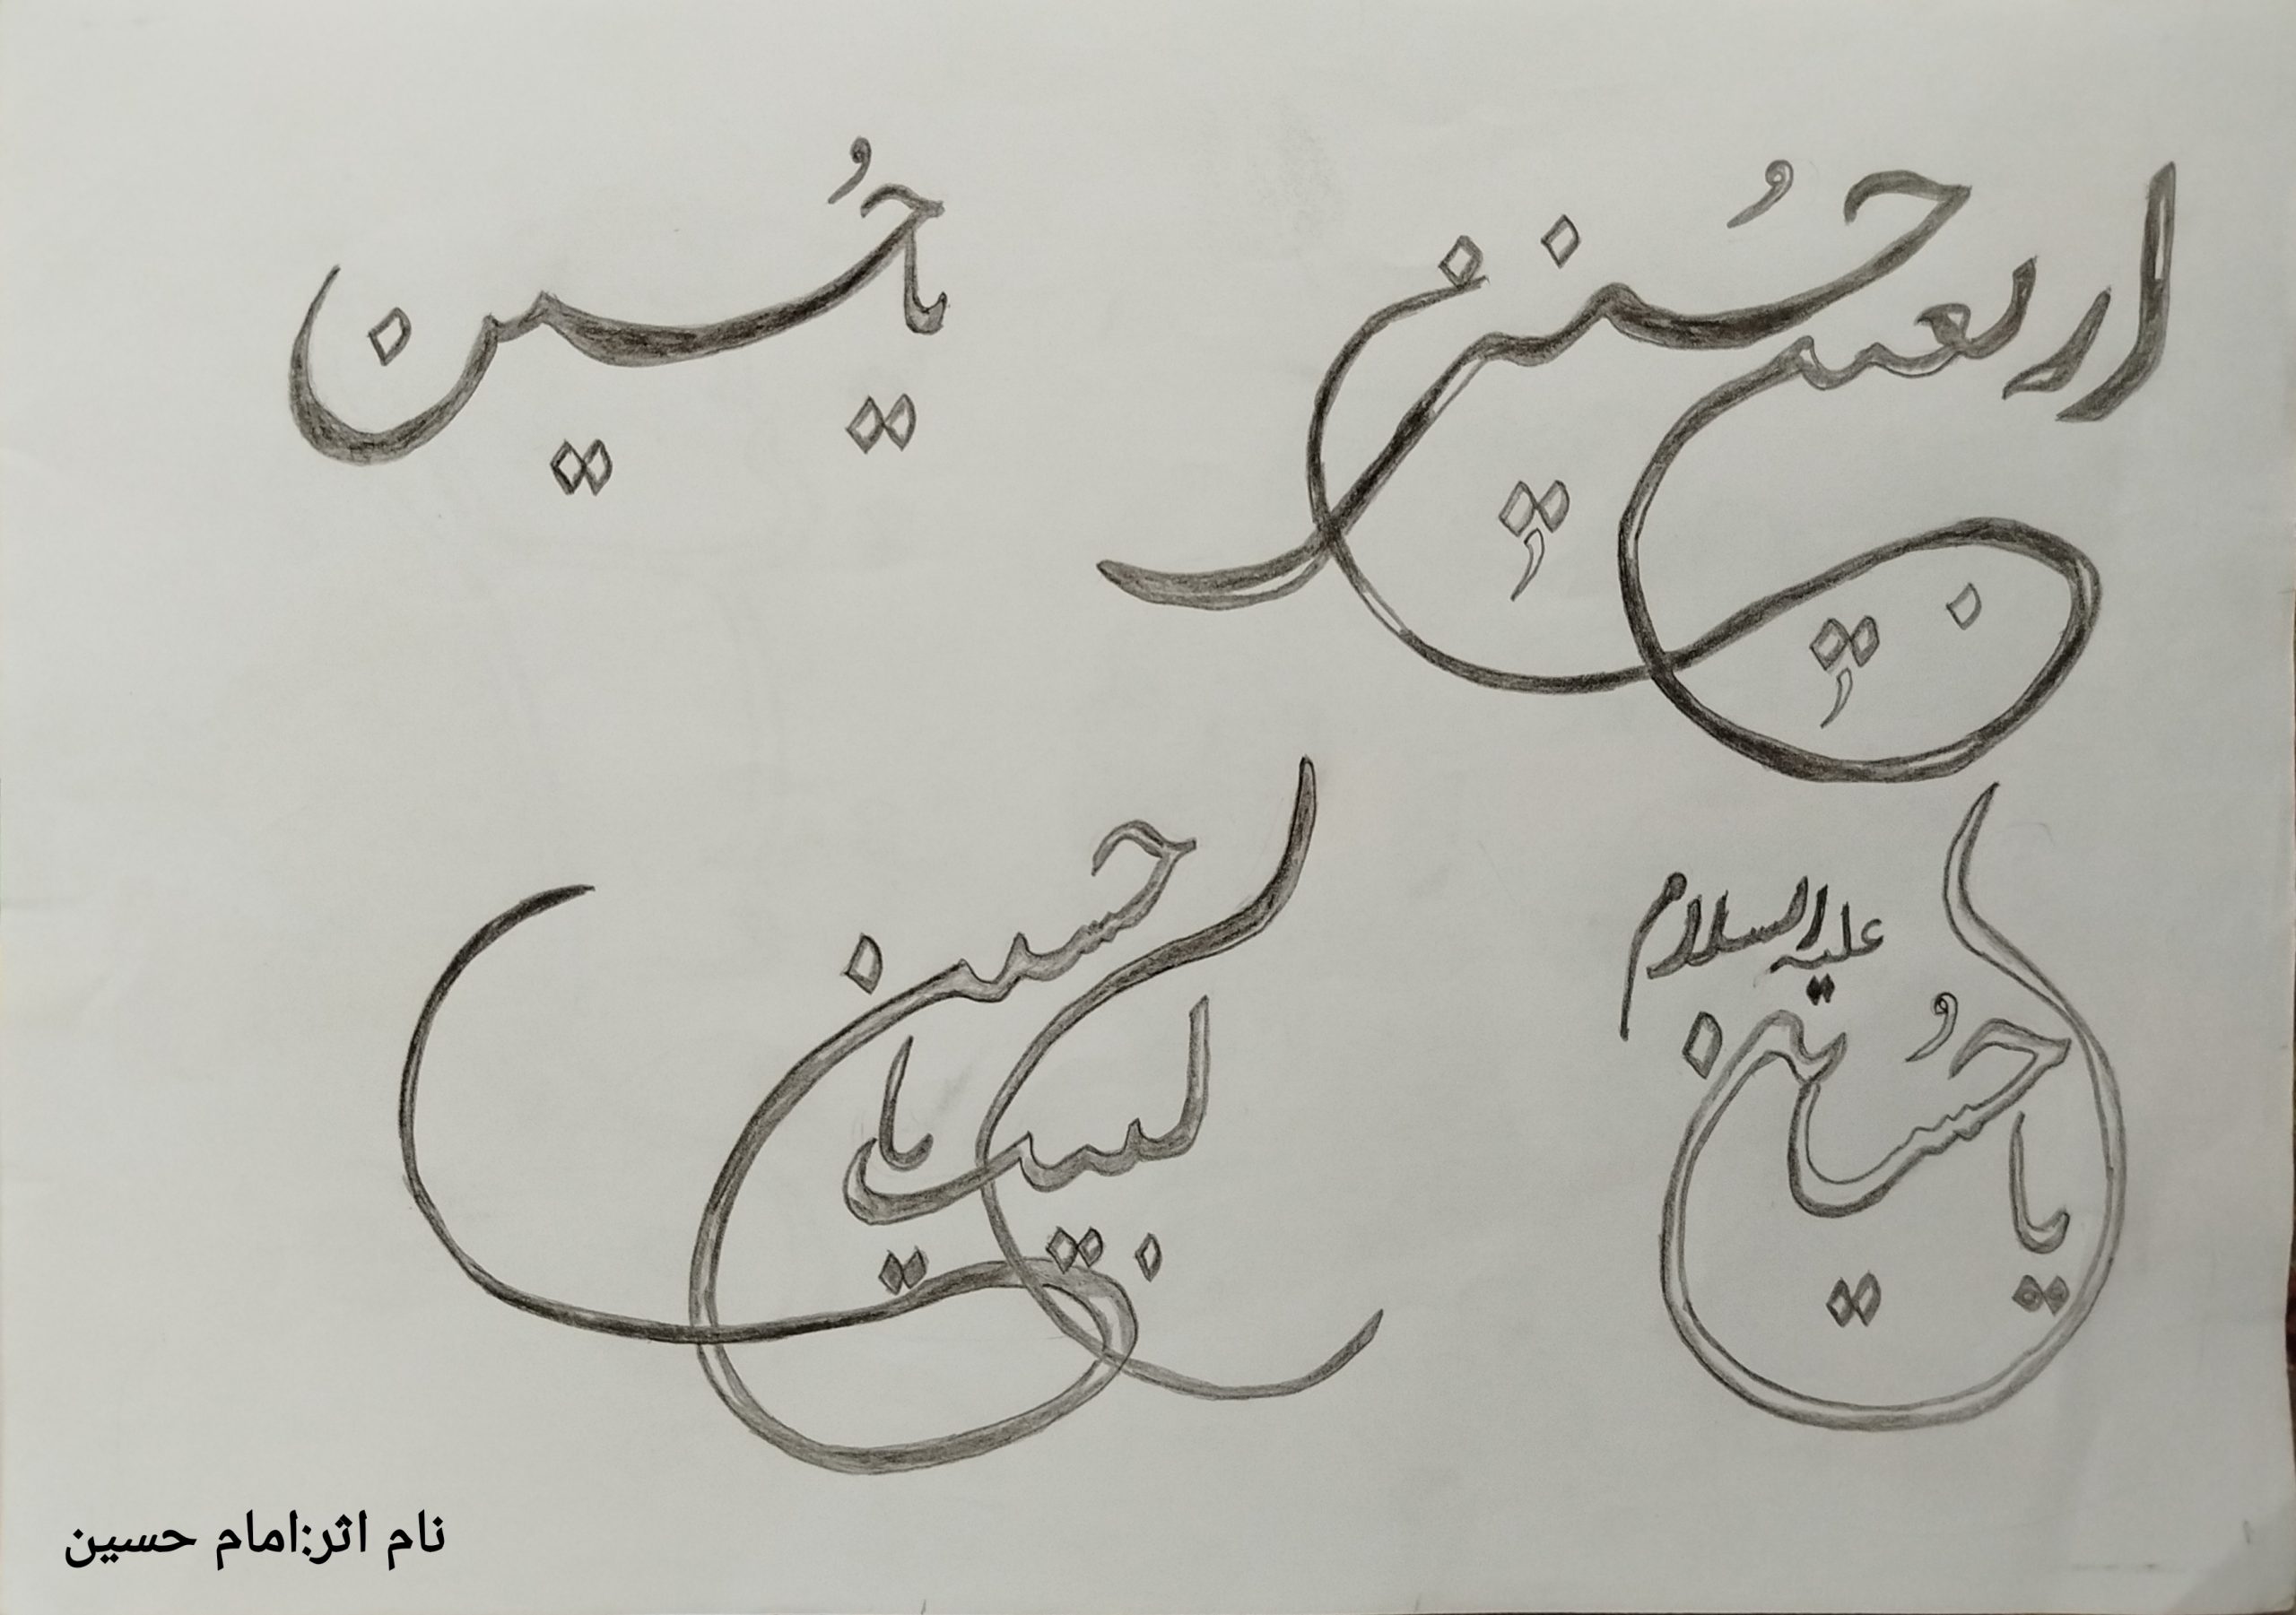 اربعین حُسینی
یا حُسین
یا حُسین
علیه السلام
لبیک یا حسین
نام اثر:امام حسین